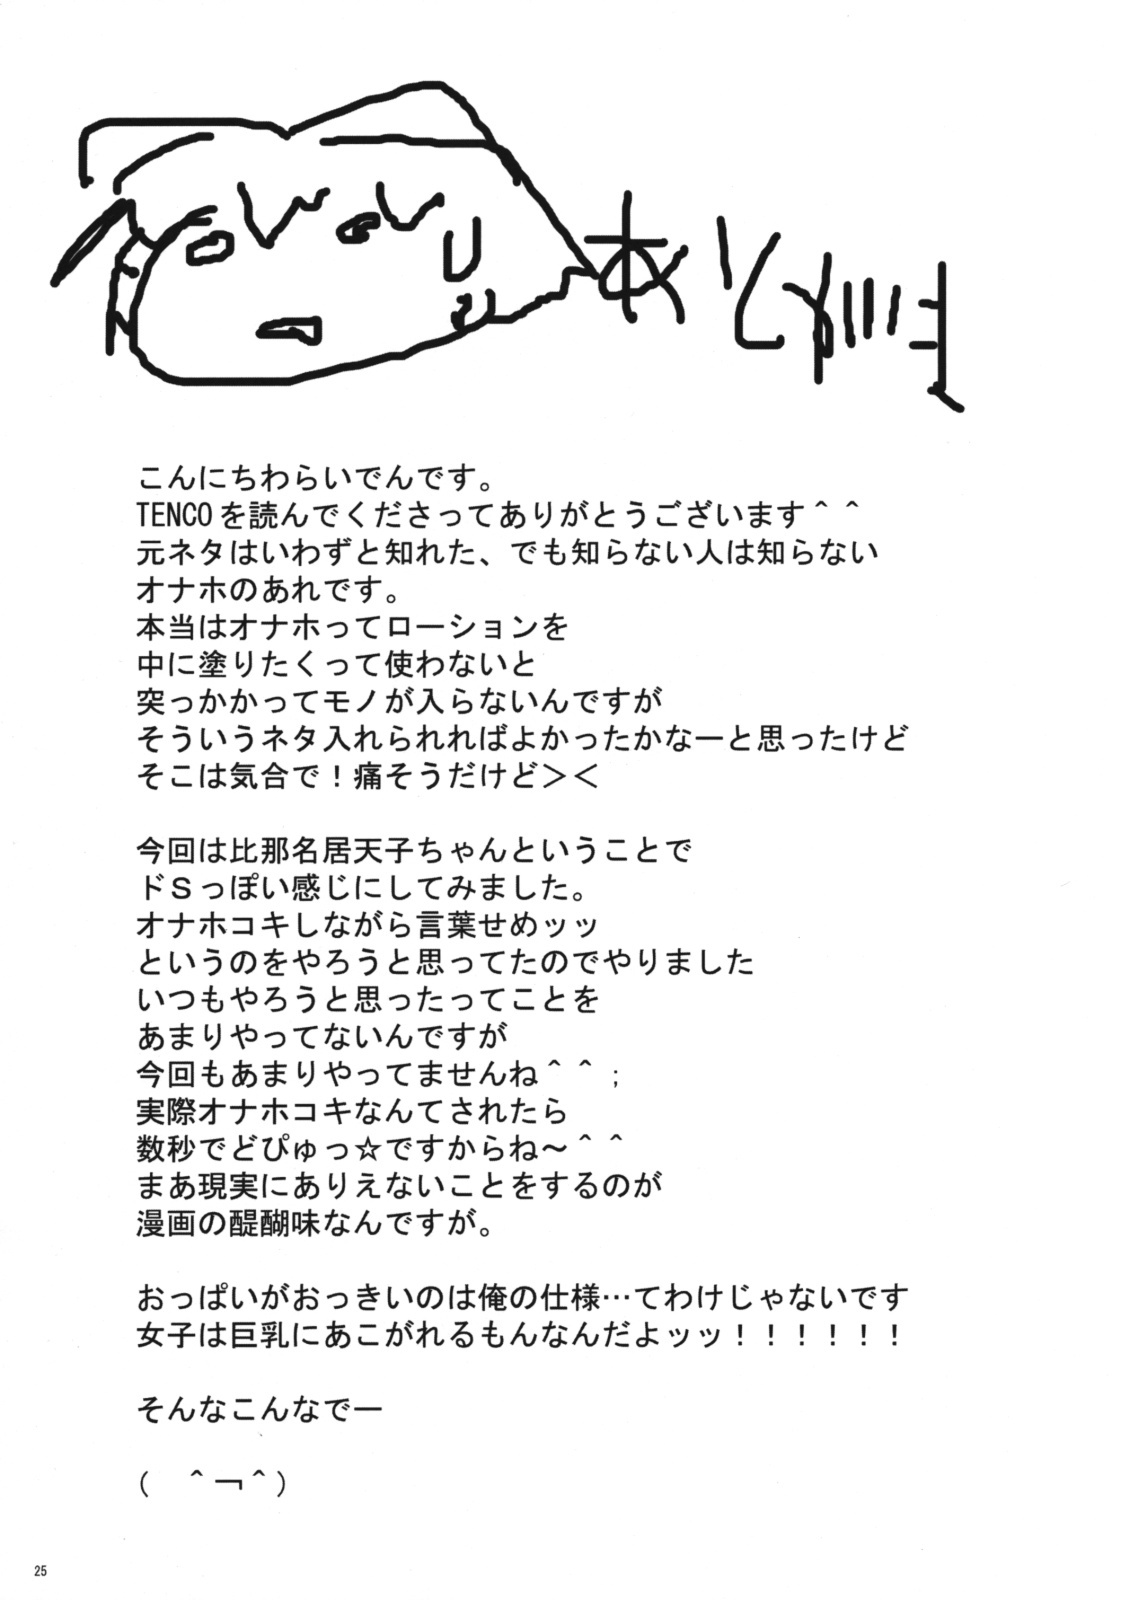 あとがき
こんにちわらいでんです。
TENCOを読んでくださってありがとうございます＾＾
元ネタはいわずと知れた、でも知らない人は知らない
オナホのあれです。
本当はオナホってローションを
中に塗りたくって使わないと
突っかかってモノが入らないんですが
そういうネタ入れられればよかったかなーと思ったけど
そこは気合で！痛そうだけど＞＜
今回は比那名居天子ちゃんということで
ドＳっぽい感じにしてみました。
オナホコキしながら言葉せめッッ
というのをやろうと思ってたのでやりました
いつもやろうと思ったってことを
あまりやってないんですが
今回もあまりやってませんね＾＾；
実際オナホコキなんてされたら
数秒でどぴゅっ☆ですからね～＾＾
まあ現実にありえないことをするのが
漫画の醍醐味なんですが。
おっぱいがおっきいのは俺の仕様…てわけじゃないです
女子は巨乳にあこがれるもんなんだよッッ！！！！！！
そんなこんなでー
（　＾￢＾）
25